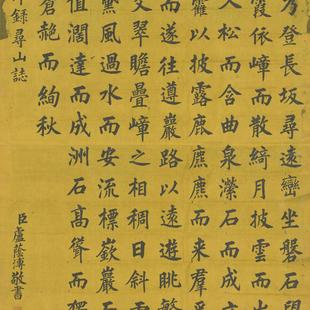 登長坂尋遠巒坐磐石望
霞依嶂而散綺月披雲而
松而含曲泉瀠石而成
靃以披露鹿麃麃而來羣
而遂往遵巖路以遠遊眺繁
翠瞻疊嶂之相稠日斜
風過水而安流標嶔巖
值濶達而成洲石髙聳而
蒼赩而絢秋
錄尋山誌
臣盧蔭溥敬書